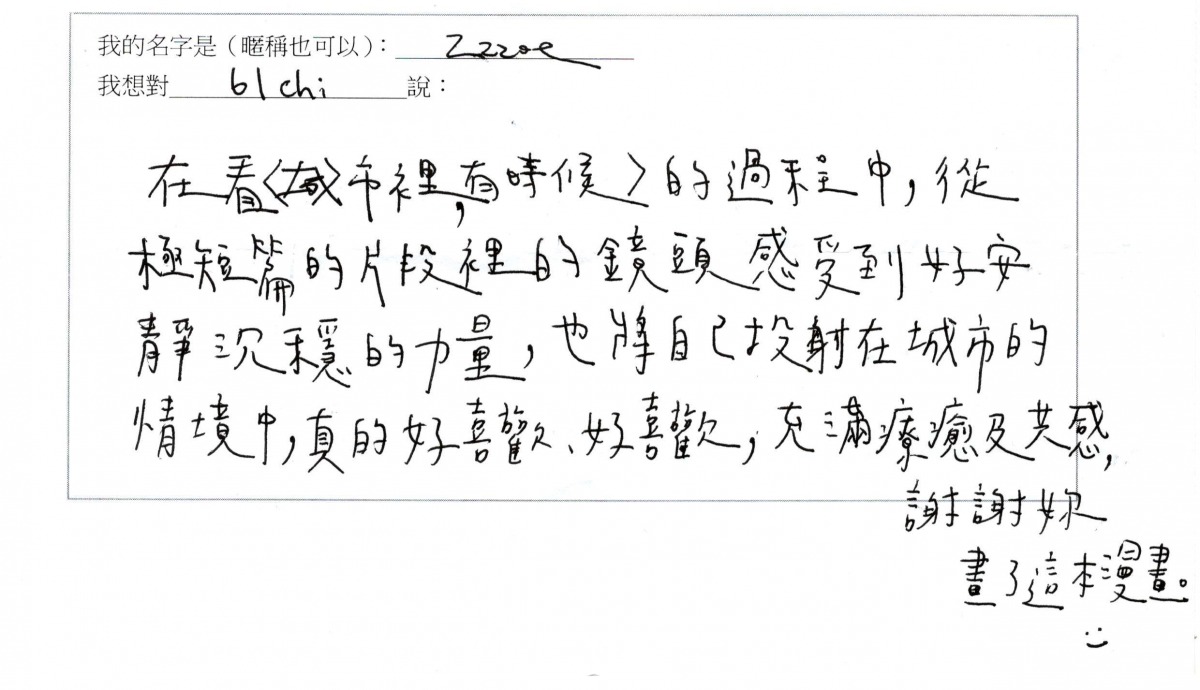 我的名字是（暱稱也可以）：Zzzoe
我想對 61chi 說：
在看〈城市裡,有時候〉的過程中，從
極短篇的片段裡的鏡頭感受到好安
靜沉穩的力量，也將自己投射在城市的
情境中，真的好喜歡、好喜歡，充滿療癒及共感，
謝謝妳
畫了這本漫畫。
:)